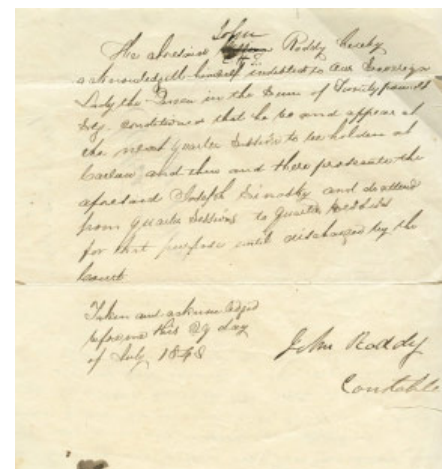 John
The aforesaid Roddy hereby
acknowledgeth himself indebted to our Sovereign
Lady the Queen in the Sum of Twenty pounds
Stg. conditioned that he be and appear at
the next Quarter Session to be holden at
Carlow and then and there prosecute the
aforesaid Joseph and do attend
from Quarter Sessions to Quarter Sessions
for that purpose until discharged by the
Court
Taken and acknowledged
before me this 29 day
of July 1848
John Roddy
Constable